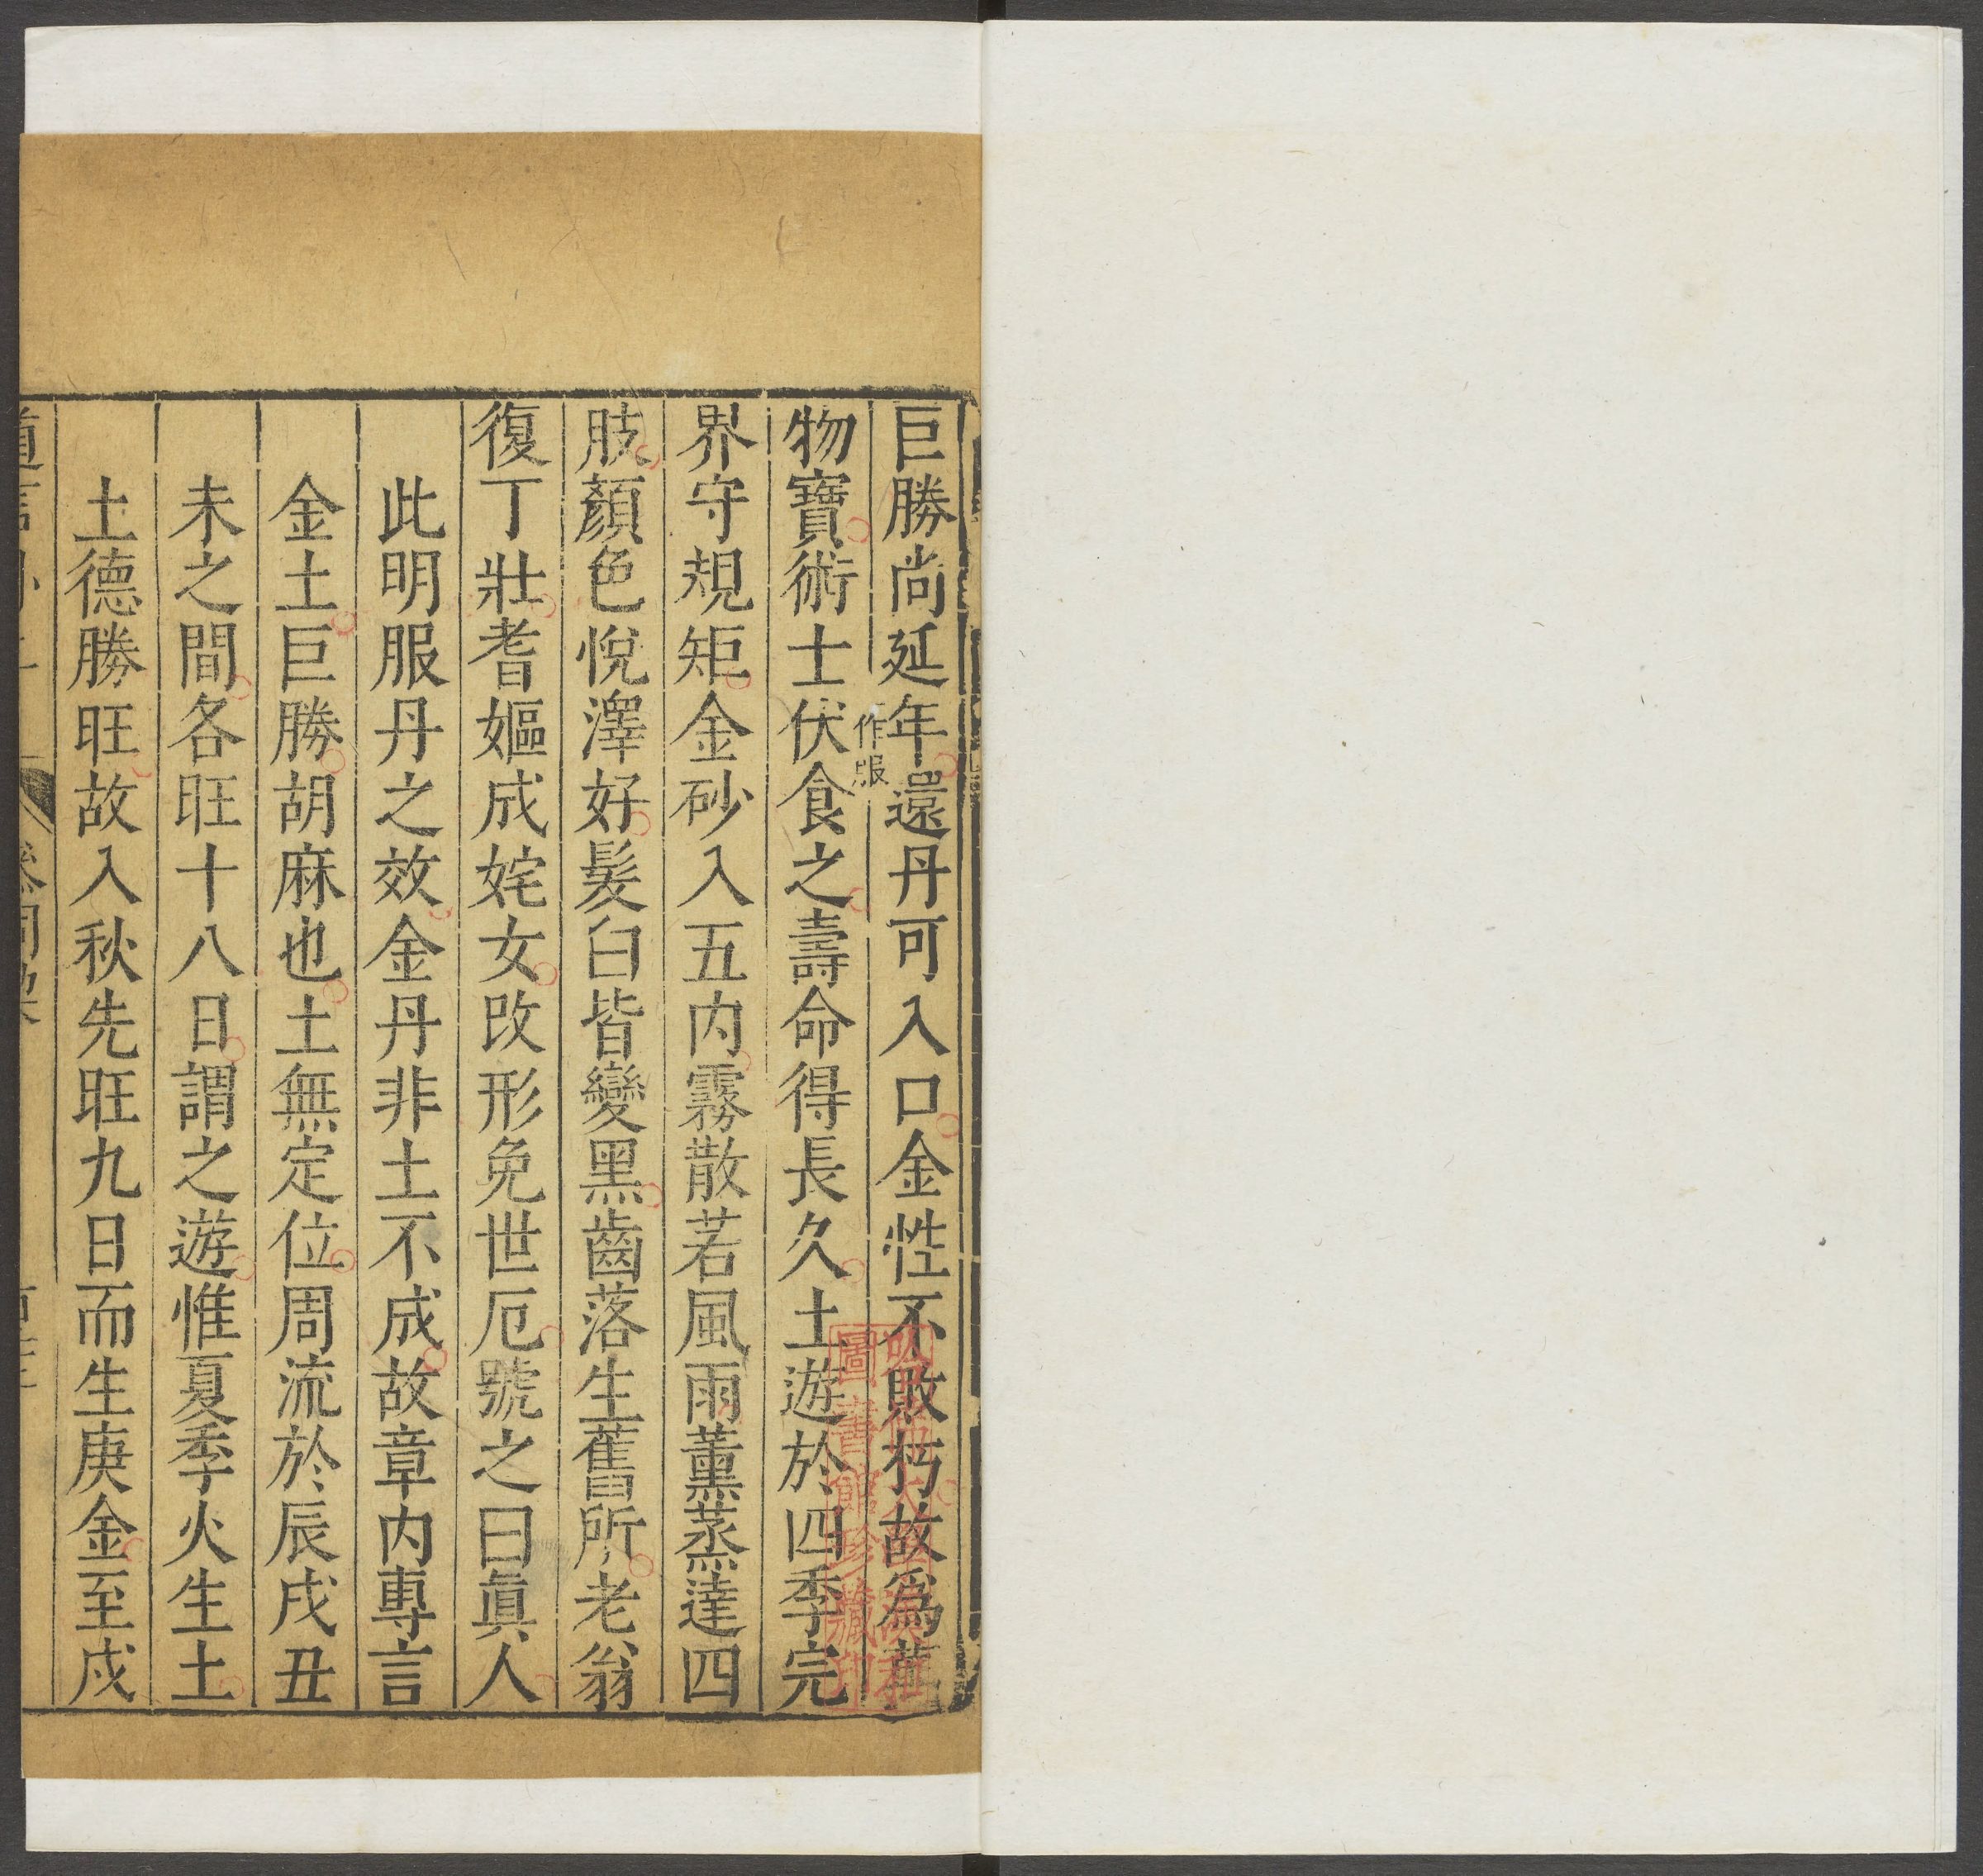 巨勝尚延年還丹可入口金性不敗朽故爲萬
物寶術士伏食之壽命得長久土遊於四季完
作服
界守規矩金砂入五内霧散若風雨薰蒸達四
肢顏色悅澤好髮白皆變黑齒落生舊所老翁
復丁壯耆嫗成姹女改形免世厄號之曰眞人
此明服丹之效金丹非土不成故章内專言
金土巨勝胡麻也土無定位周流於辰戌丑
未之間各旺十八日謂之遊惟夏季火生土
土德勝旺故入秋先旺九日而生庚金至戌
道言外
參同契
圖書館珍藏印